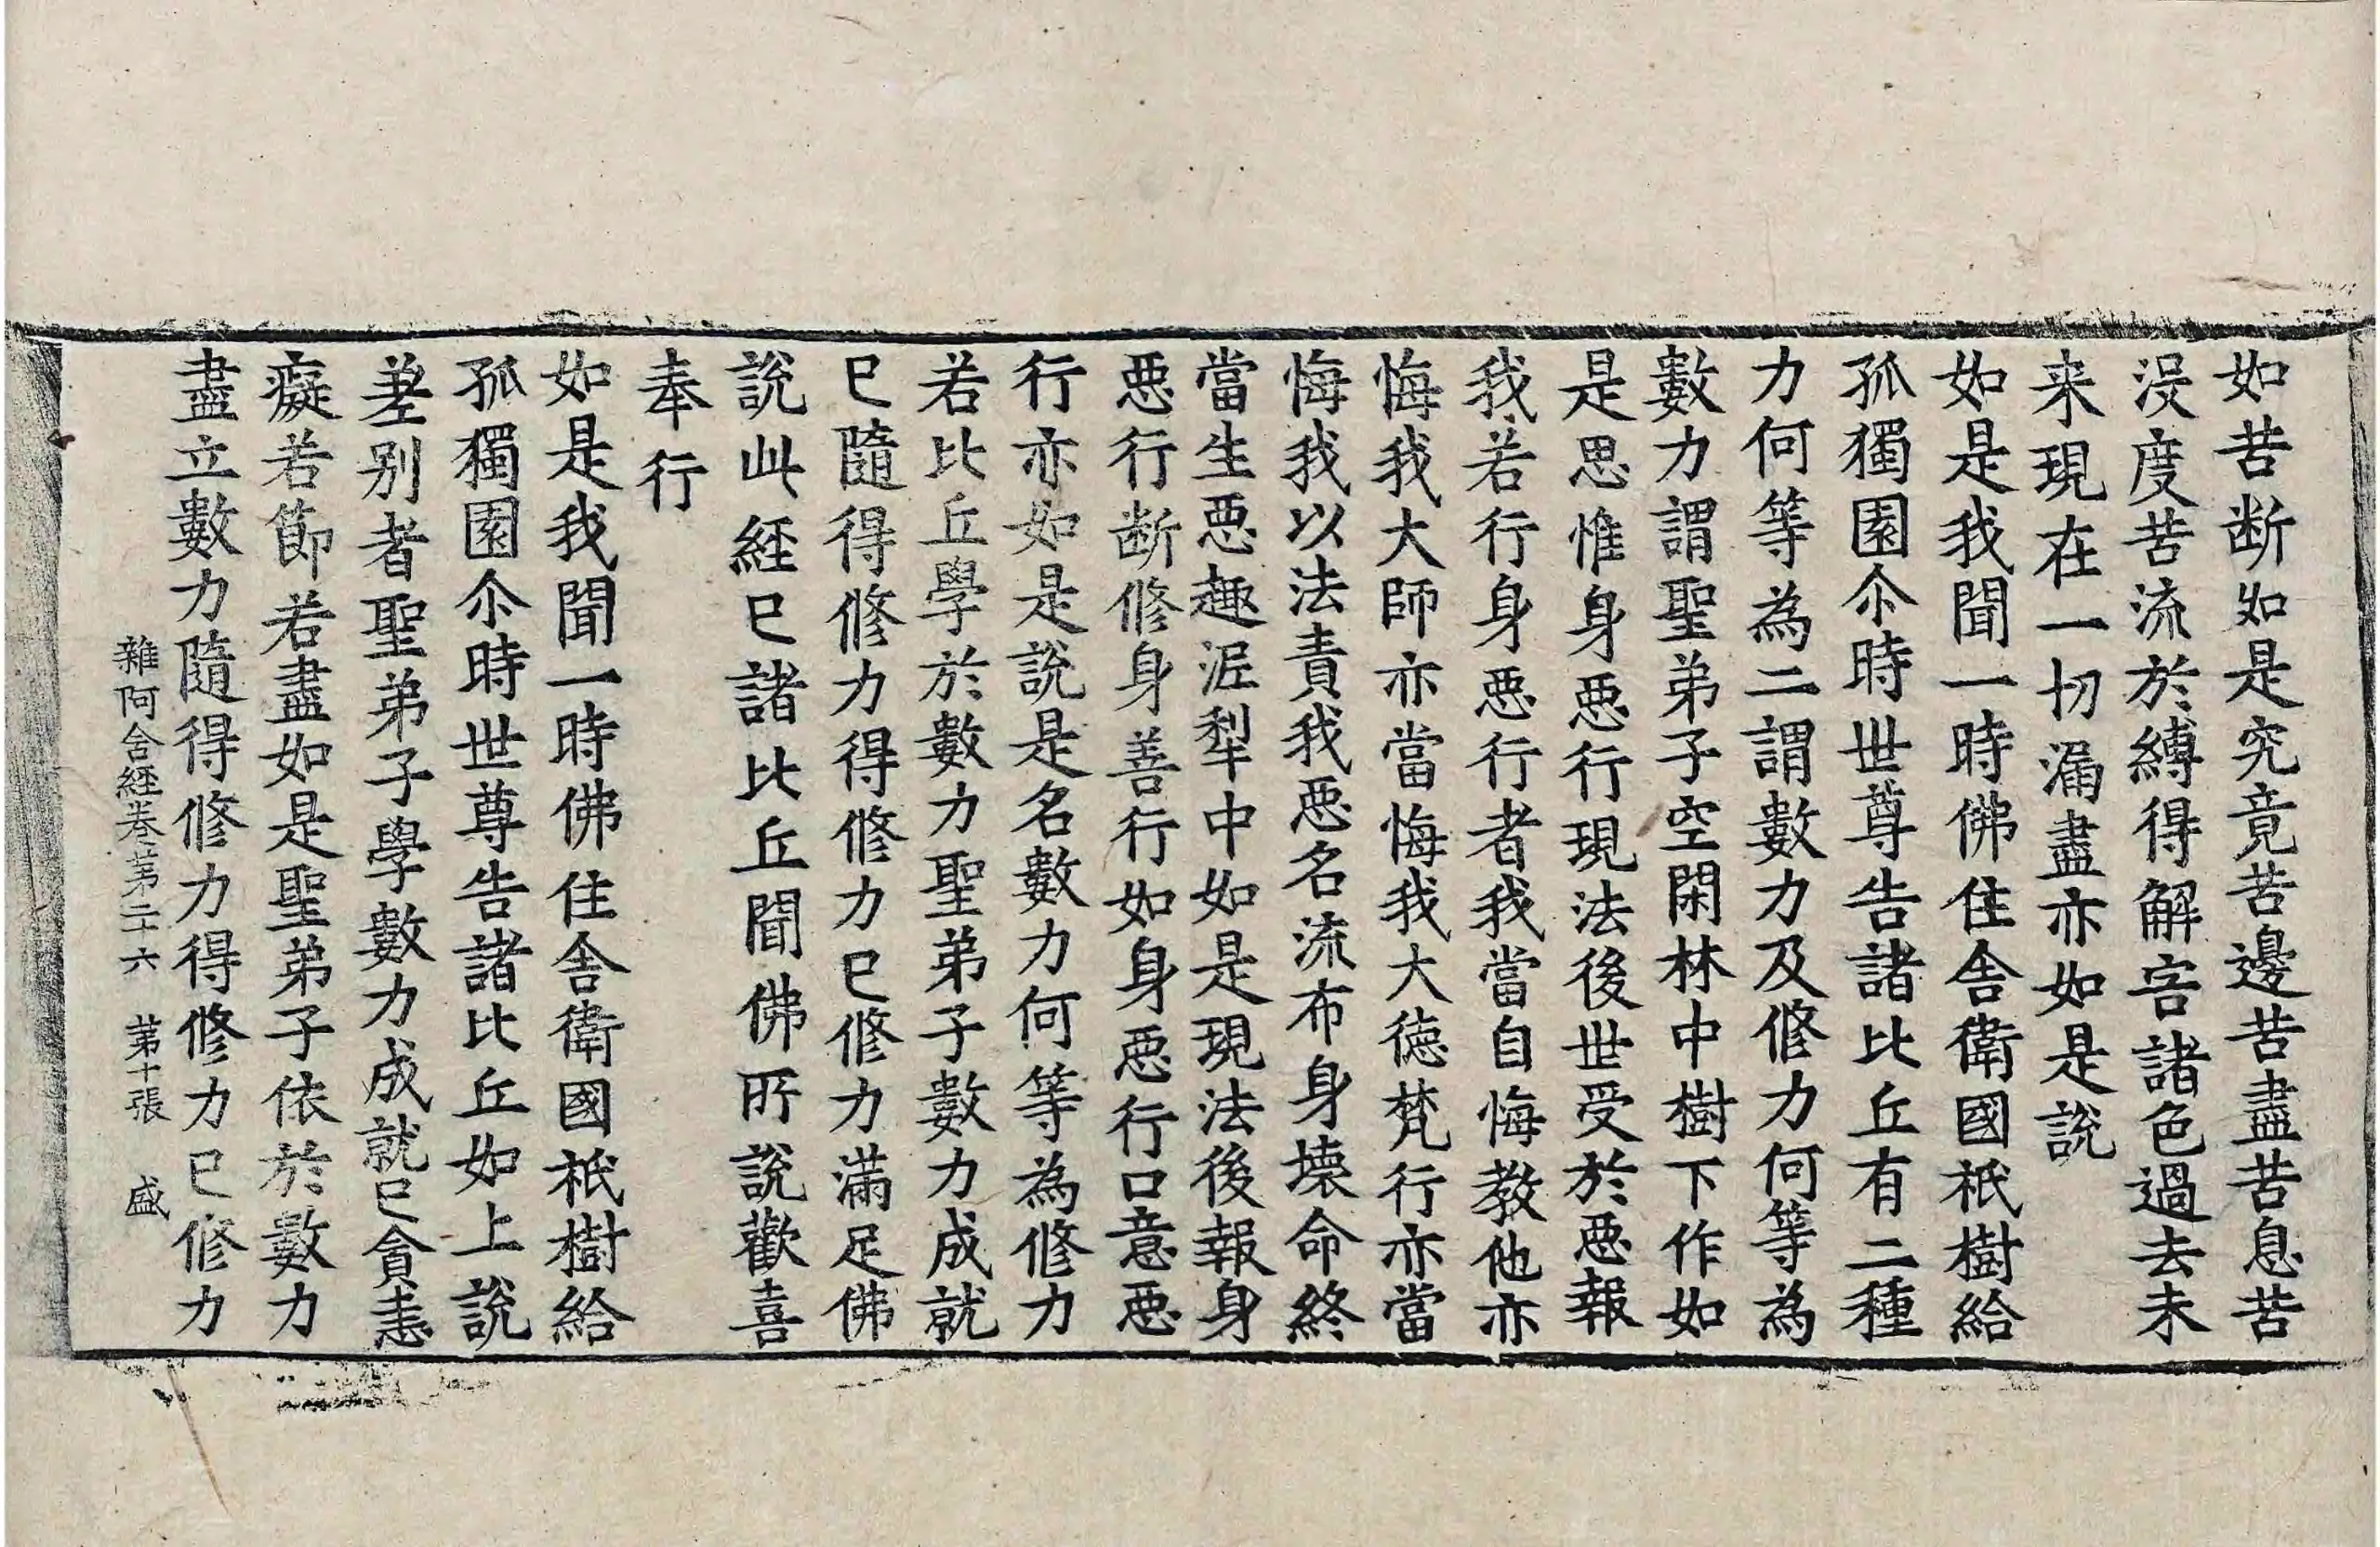 如苦断如是究竟苦邊苦盡苦息苦
没度苦流於縛得解害諸色過去未
来現在一切漏盡亦如是說
如是我聞一時佛住舍衛國祇樹給
孤獨園尒時世尊告諸比丘有二種
力何等為二謂數力及修力何等為
數力謂聖弟子空閑林中樹下作如
是思惟身惡行現法後世受於惡報
我若行身惡行者我當自悔教他亦
悔我大師亦當悔我大德梵行亦當
悔我以法責我惡名流布身壞命終
當生惡趣泥犁中如是現法後報身
惡行断修身善行如身惡行口意惡
行亦如是說是名數力何等為修力
若比丘學於數力聖弟子數力成就
已隨得修力得修力已修力滿足佛
說此経已諸比丘聞佛所說歡喜
奉行
如是我聞一時佛住舍衛國祇樹給
孤獨園尒時世尊告諸比丘如上說
差別者聖弟子學數力成就已貪恚
癡若節若盡如是聖弟子依於數力
盡立數力隨得修力得修力已修力
雜阿含経卷第二十六 第十張 盛